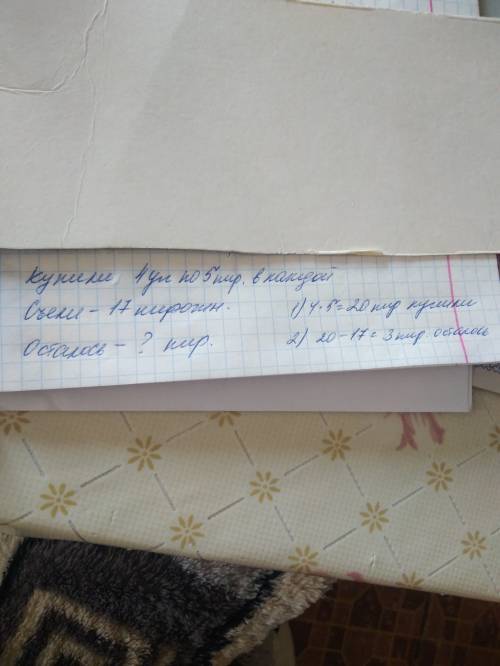 Купили 4 уп по 5 пир. в каждой
Съели - 17 пирожн.
Осталось - ? пир.
1) 4·5=20 пир купили
2) 20-17=3 пир. осталось